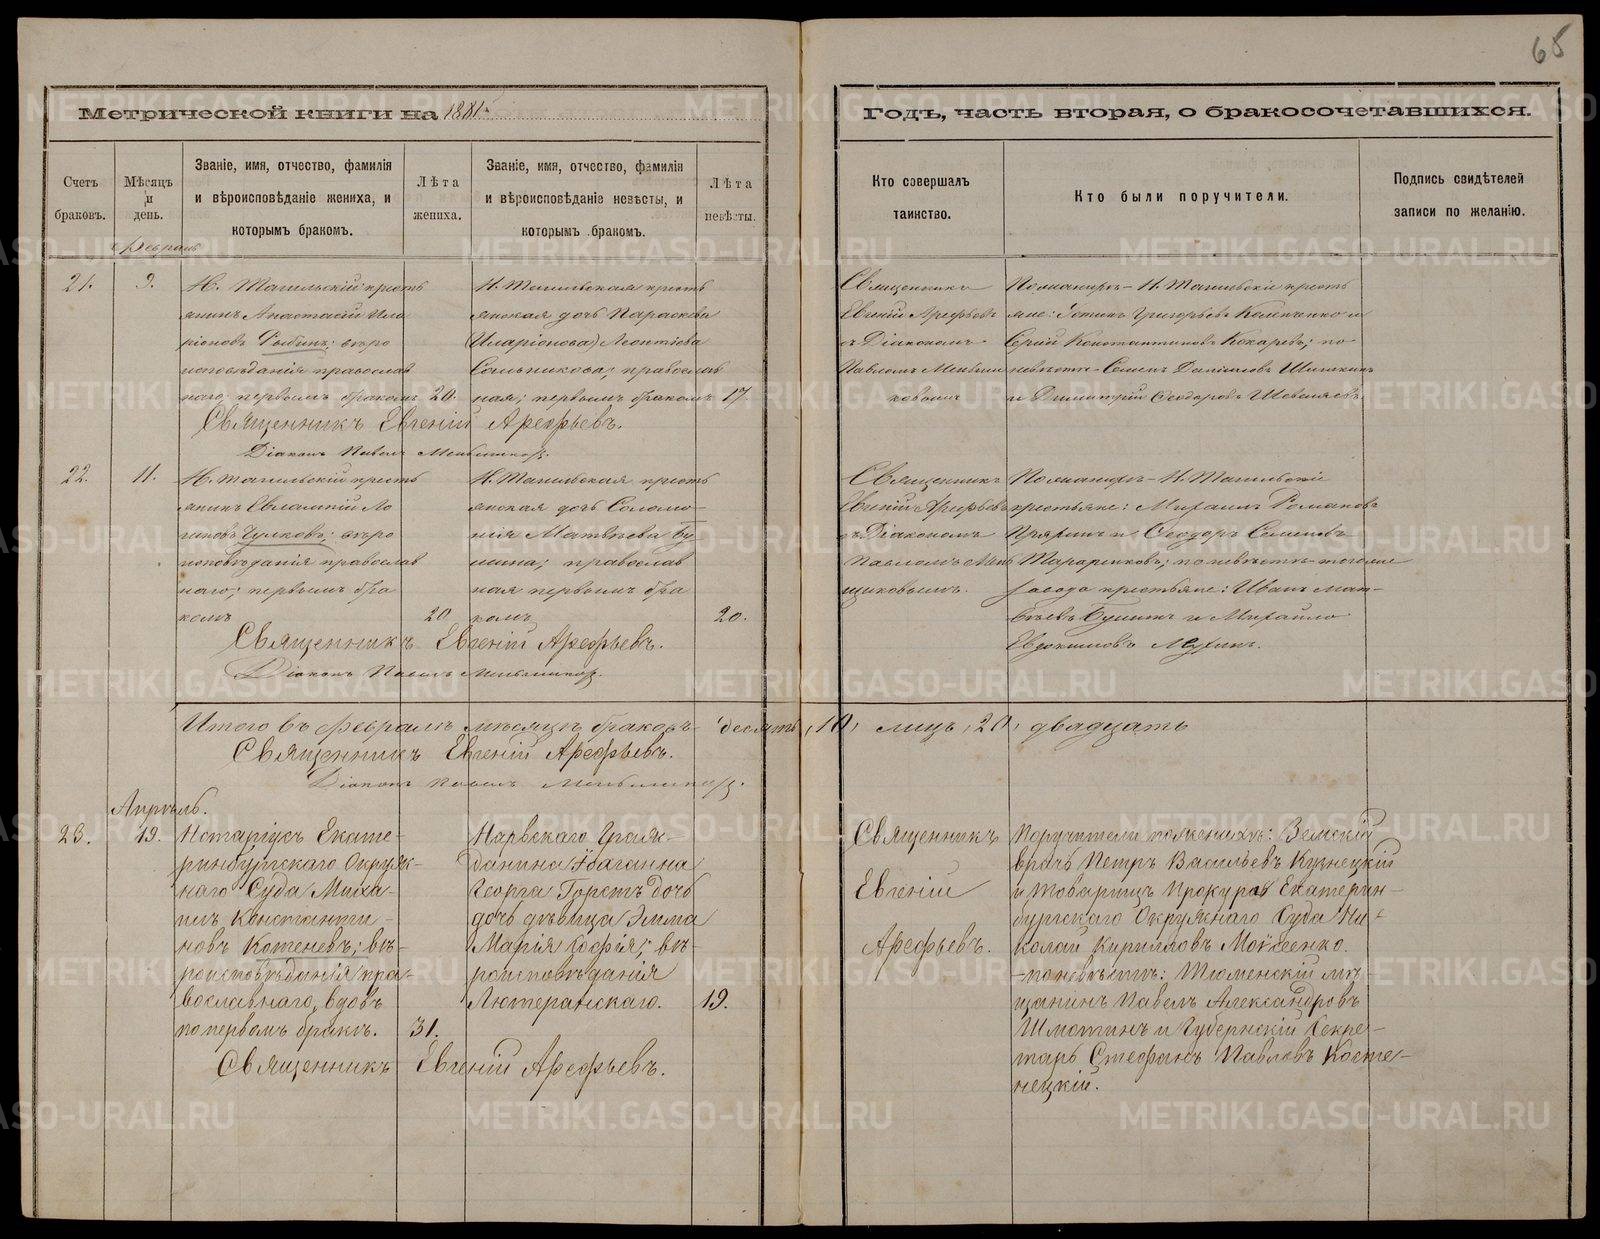 65
Метрической книги на 1881
Годъ, часть вторая, о бракосочетавшихся.
Счетъ браковъ.
Мѣсяцъ и день.
Званіе, имя, отчество, фамилія и вѣроисповѣданіе жениха, и которымъ бракомъ.
Лѣта жениха.
Званіе, имя, отчество, фамилія и вѣроисповѣданіе невѣсты, и которымъ бракомъ.
Лѣта невѣсты.
Кто совершалъ таинство.
Кто были поручители.
Подпись свидѣтелей записи по желанію.
Февраль
21.
9.
Н. Тагильскій кресть
янинъ Анастасій Ила
ріоновъ Рыбинъ; вѣро
исповѣданія православ
наго; первымъ бракомъ
20.
Н. Тагильская кресть
янская дочь Параскева
(Иларіонова) Леонтіева
Сальникова; православ
ная; первымъ бракомъ
17.
Священникъ
Евгеній Арефьевъ
съ Діакономъ
Павломъ Меньши
ковымъ
По женихѣ - Н. Тагильскіе кресть
яне: Григорьевъ
Константиновъ Кокаревъ; по
невѣстѣ - Семенъ Даніиловъ
и Димитрій Ѳеодоровъ
Священникъ Евгеній Арефьевъ.
Діаконъ Павелъ Меньшиковъ.
22.
11.
Н. Тагильскій кресть
янинъ Евлампій Ло
гиновъ Чулковъ; вѣро
исповѣданія православ
наго; первымъ бра
комъ
20
Н. Тагильская кресть
янская дочь Соломо-
нія Матвѣева Бу
шина; православ
ная первымъ бра
комъ
20.
Священникъ
Евгеній Арефьевъ
съ Діакономъ
Павломъ Мень
щиковымъ.
По женихѣ - Н. Тагильскіе
крестьяне: Михаилъ Романовъ
и Ѳеодоръ Семеновъ
по невѣстѣ - того же
завода крестьяне: Иванъ Мат-
вѣевъ Бушинъ и Михайло
Евдокимовъ
Священникъ Евгеній Арефьевъ.
Діаконъ Павелъ Меньшиковъ.
Итого въ Февралѣ мѣсяцѣ браковъ десять, 10, лицъ, 20, двадцать
Священникъ Евгеній Арефьевъ.
Діаконъ Павелъ Меньшиковъ.
Апрѣль.
23.
19.
Нотаріусъ Екате-
ринбургскаго Окруж-
наго Суда Миха-
илъ Константи-
новъ Котеневъ; вѣ-
роисповѣданія пра-
вославнаго, вдовъ
по первомъ бракѣ.
31.
Нарвскаго Граж-
данина Іоганна
Георга Горстъ дочь
дочь дѣвица Эмма
Марія Софія; вѣ-
роисповѣданія
Лютеранскаго.
19.
Священникъ
Евгеній
Арефьевъ.
Поручители по женихѣ: Земскій
врачъ Петръ Васильевъ Кузнецкій
и Товарищъ Прокурора Екатерин-
бургскаго Окружнаго Суда Ни-
колай Кирилловъ
- по невѣстѣ: Тюменскій мѣ-
щанинъ Павелъ Александровъ
Шмотинъ и Губернскій Секре-
тарь Стефанъ Павловъ Косте-
нецкій.
Священникъ Евгеній Арефьевъ.
METRIKI.GASO-URAL.RU